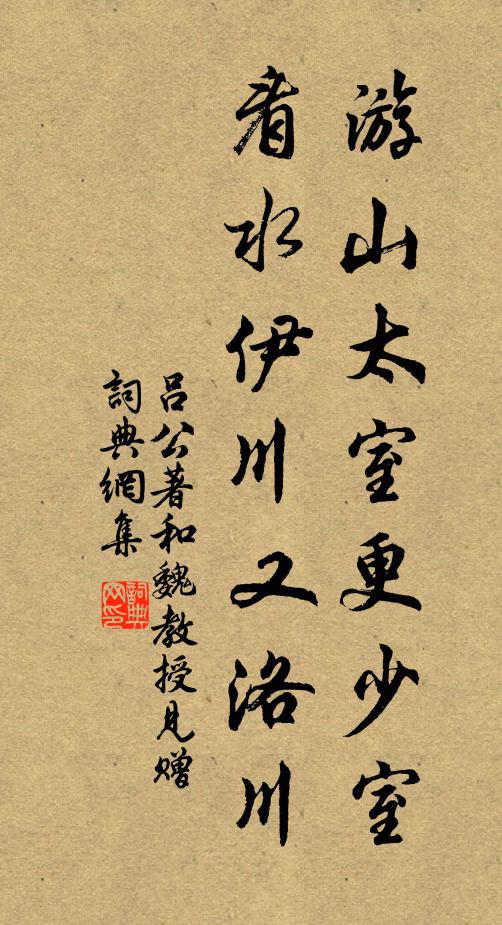 游山太室更少室
看水伊川又洛川
吕公著和魏教授見贈
詞典網集
詞典
网印